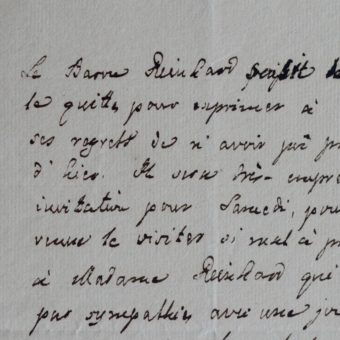 Le Baron Reinhard saisit
le quitte pour exprimer à
ses regrets de n'avoir pû
d'hier. Il sera très-empre
invitation pour Samedi, pou
venue le visiter si mal à p
à Madame Reinhard qui
pas sympathiser avec une jo